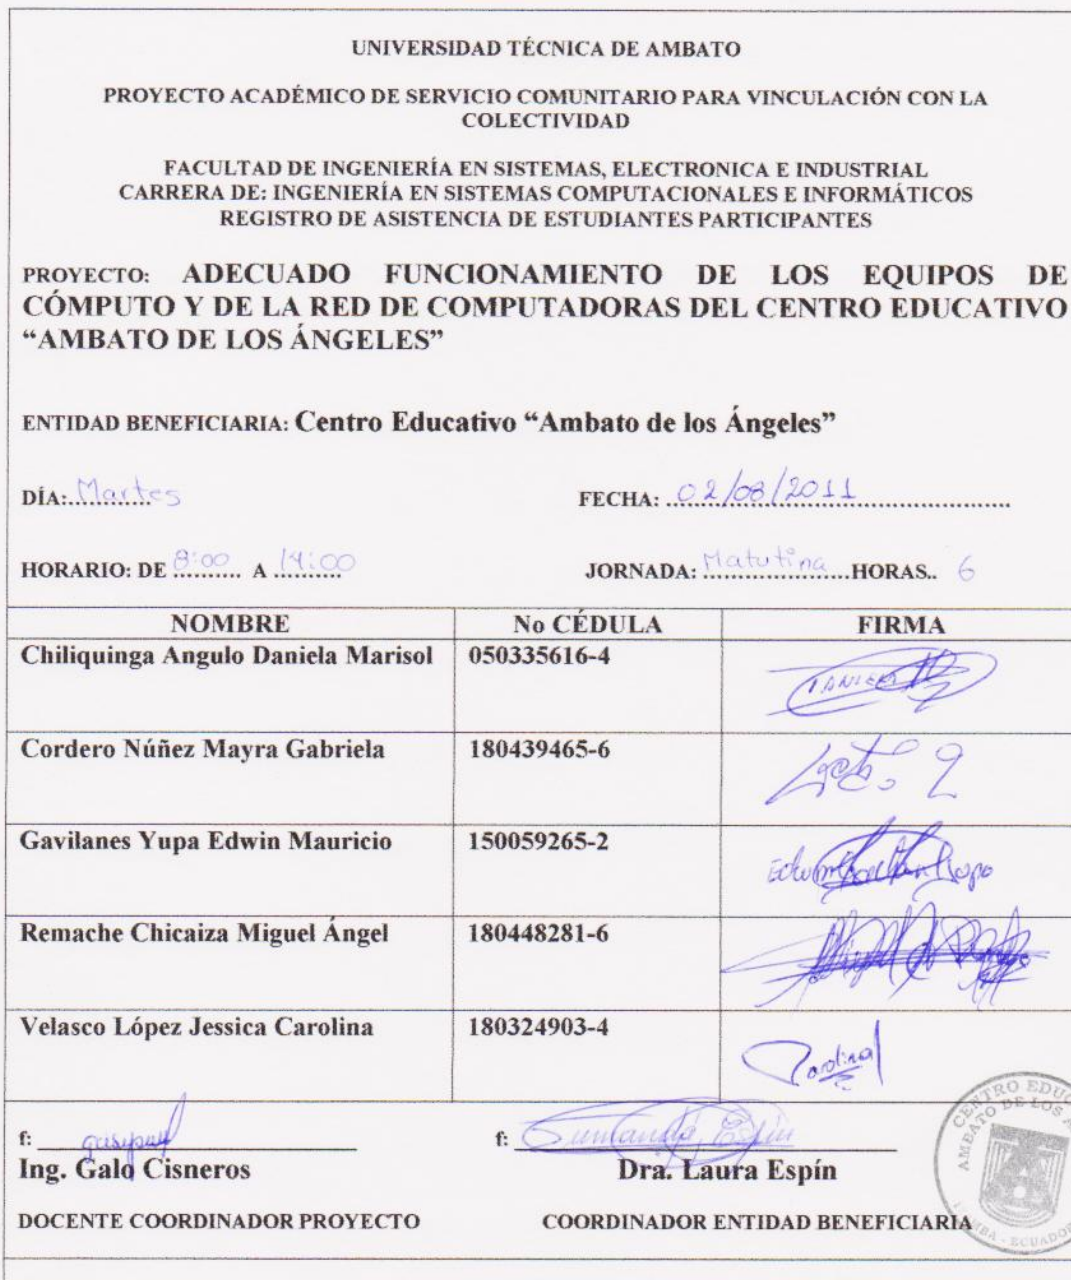 UNIVERSIDAD TÉCNICA DE AMBATO
PROYECTO ACADÉMICO DE SERVICIO COMUNITARIO PARA VINCULACIÓN CON LA
COLECTIVIDAD
FACULTAD DE INGENIERÍA EN SISTEMAS, ELECTRONICA E INDUSTRIAL
CARRERA DE: INGENIERÍA EN SISTEMAS COMPUTACIONALES E INFORMÁTICOS
REGISTRO DE ASISTENCIA DE ESTUDIANTES PARTICIPANTES
PROYECTO: ADECUADO FUNCIONAMIENTO DE LOS EQUIPOS DE
CÓMPUTO Y DE LA RED DE COMPUTADORAS DEL CENTRO EDUCATIVO
“AMBATO DE LOS ÁNGELES”
ENTIDAD BENEFICIARIA: Centro Educativo “Ambato de los Ángeles”
DÍA: Martes FECHA: 02/08/2011
HORARIO: DE 8:00 A 14:00 JORNADA: Matutina HORAS.. 6
NOMBRE No CÉDULA FIRMA
Chiliquinga Angulo Daniela Marisol 050335616-4
Cordero Núñez Mayra Gabriela 180439465-6
Gavilanes Yupa Edwin Mauricio 150059265-2
Remache Chicaiza Miguel Ángel 180448281-6
Velasco López Jessica Carolina 180324903-4
f: f:
Ing. Galo Cisneros Dra. Laura Espín
DOCENTE COORDINADOR PROYECTO COORDINADOR ENTIDAD BENEFICIARIA
CENTRO
AMBATO DE LOS
ECUADOR